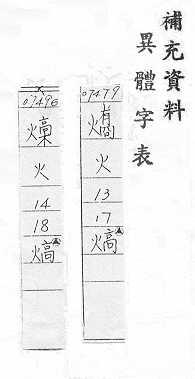 補充資料
異體字表
07479
火
13
17
熇
07496
燺
火
14
18
熇